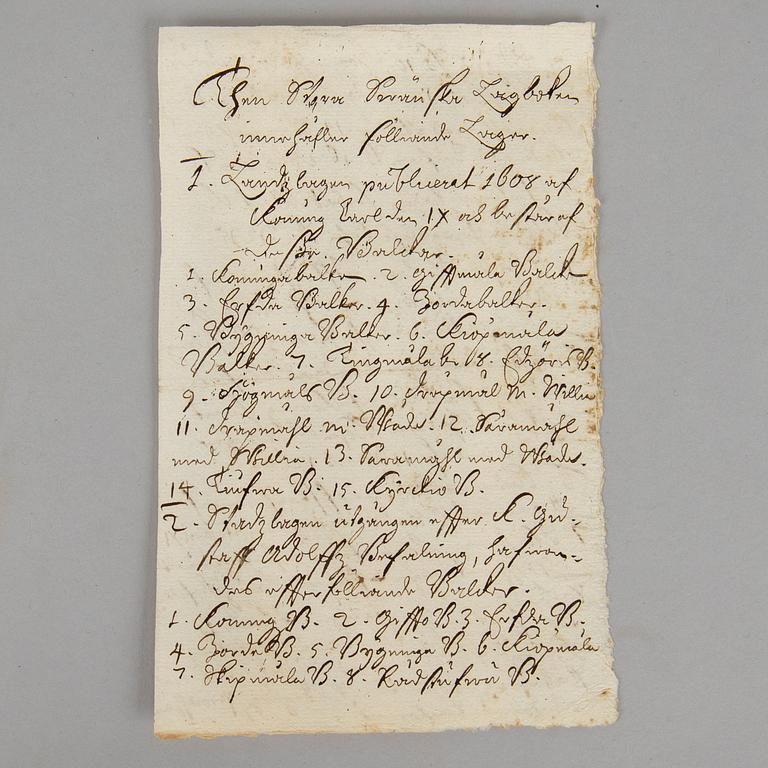 Then Stora Swänska Lagboken
innehåller följiande Lagar.
1. Landzlagen publicerat 1608 af
Konung Carl den IX och bestär af
desse Balckar.
1. Konungabalken 2. Giftmåla Balck
3. Erfda Balker. 4. Jordabalker.
5. Bygninga Balker. 6. Kiöpmåla
Balker. 7. Tingmåla b. 8. Edzöris B.
9. Högmåls B. 10. Drapmål m. Willia
11. Drapmåhl m. Wåda. 12. Såramåhl
med Willia. 13. Såramåhl med Wåda.
14. Tiufwa B. 15. Kyrckio B.
2. Stadzlagen utgången effter K. Gu-
staff Adolffz Befalning, hafwan-
des effterfölliande Balcker.
1. Konung B. 2. Giffto B. 3. Erfda B.
4. Jorda B. 5. Bygninga B. 6. Kiöpmåla
7. Skipmåla B. 8. Rådstufwu B.